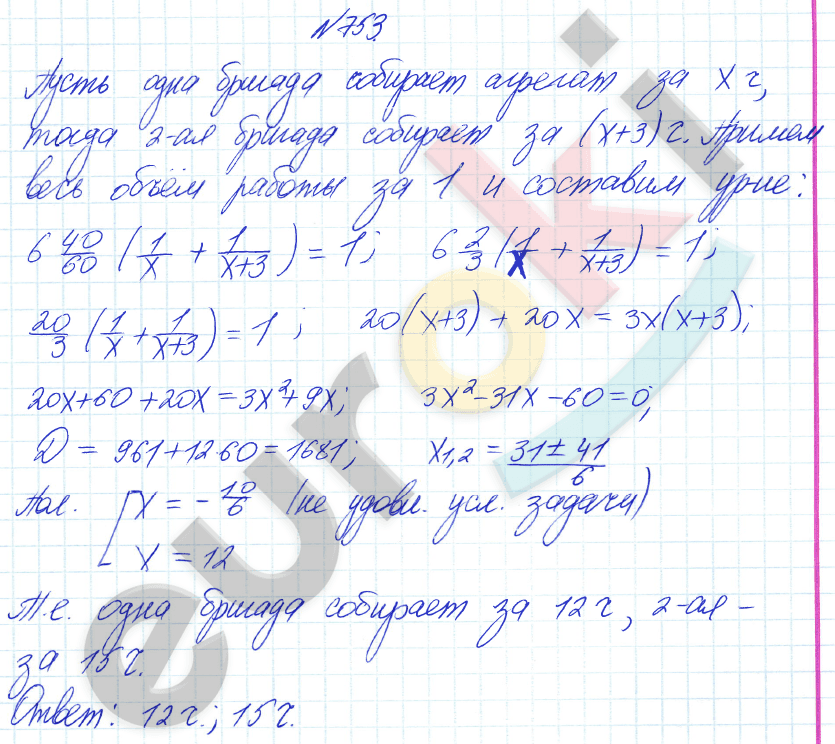 №753.
Пусть одна бригада собирает агрегат за x ч,
тогда 2-ая бригада собирает за (x+3) ч. Примем
весь объём работы за 1 и составим ур-ие:
6 40/60 (1/x + 1/(x+3)) = 1; 6 2/3 (1/x + 1/(x+3)) = 1;
20/3 (1/x + 1/(x+3)) = 1; 20(x+3) + 20x = 3x(x+3);
20x+60+20x=3x²+9x; 3x²-31x-60=0;
D = 961+12·60=1681; x1,2 = (31±41)/6
Пол. [x = -10/6 (не удовл. усл. задачи)
x = 12
Т.е. одна бригада собирает за 12 ч, 2-ая -
за 15 ч.
Ответ: 12 ч.; 15 ч.
euroki